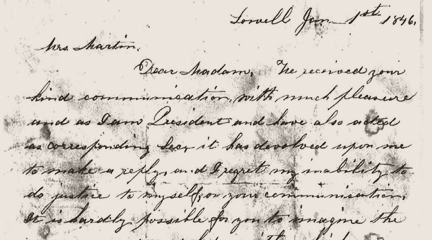 Lowell Jan. 1st 1846.
Mrs Martin,
Dear Madam, We received your
kind communication, with much pleasure
and as I am President and have also acted
as corresponding Secy it has devolved upon me
to make a reply, and I regret my inability to
do justice to myself, or your communication,
It is hardly possible for you to imagine the